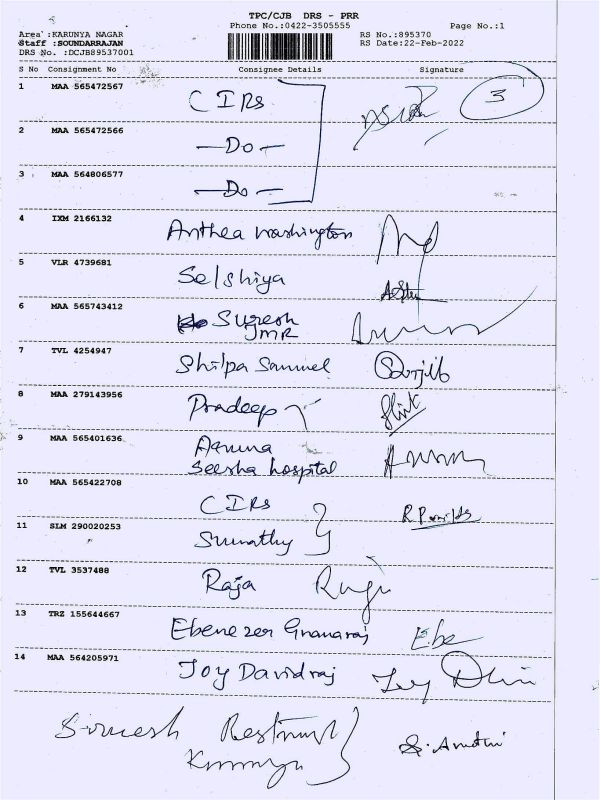 TPC/CJB DRS - PRR
Phone No.:0422-3505555 Page No.:1
Area :KARUNYA NAGAR RS No.:895370
Staff :SOUNDARRAJAN RS Date:22-Feb-2022
DRS No. :DCJB89537001
S No Consignment No Consignee Details Signature
1 MAA 565472567 CIRs 3
2 MAA 565472566 —Do—
3 MAA 564806577 —Do—
4 IXM 2166132 Anthea Washington
5 VLR 4739681 Selshiya
6 MAA 565743412 Suresh
JMR
7 TVL 4254947 Shilpa Samuel
8 MAA 279143956 Pradeep
9 MAA 565401636 Aruna
Seesha hospital
10 MAA 565422708 CIRs
11 SLM 290020253 Sumathy
12 TVL 3537488 Raja Raja
13 TRZ 155644667 Ebenezer Gnanaraj Ebe
14 MAA 564205971 Joy Davidraj Joy